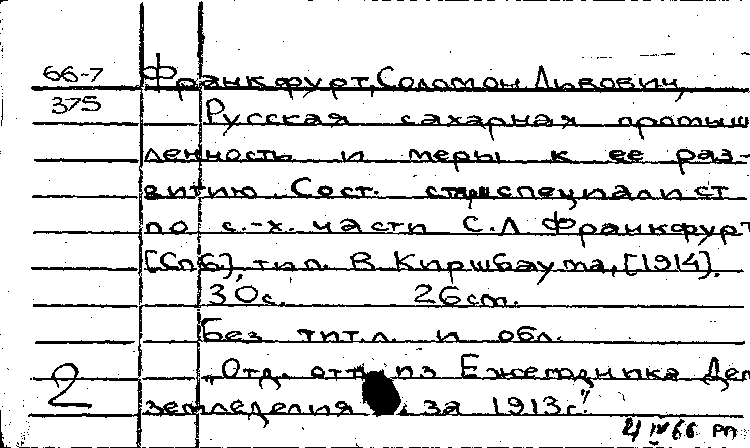 66-7
375
Франкфурт, Соломон Львович,
Русская сахарная промыш
ленность и меры к ее раз-
витию. Сост. старш. специалист
по с.-х. части С.Л. Франкфурт
[Спб], тип. В. Киршбаума, [1914].
30с. 26cm.
Без тит. л. и обл.
2
„Отд. отт. из Ежегодника Деп
земледелия за 1913г."
4 IV 66 РП